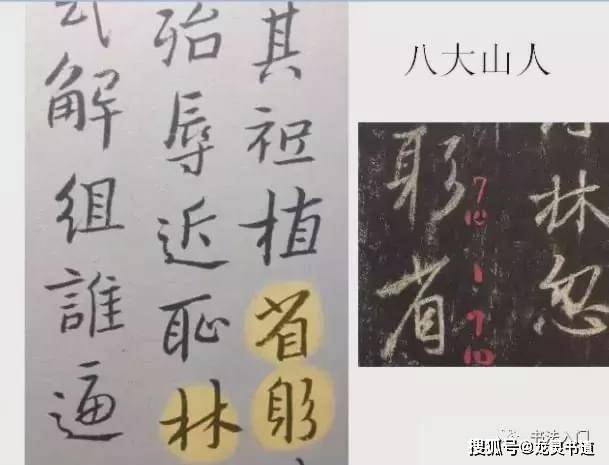 八大山人
其祗植省躬
殆辱近恥林
解組誰逼
林忽
躬省
书法入门
搜狐号@龙灵书道